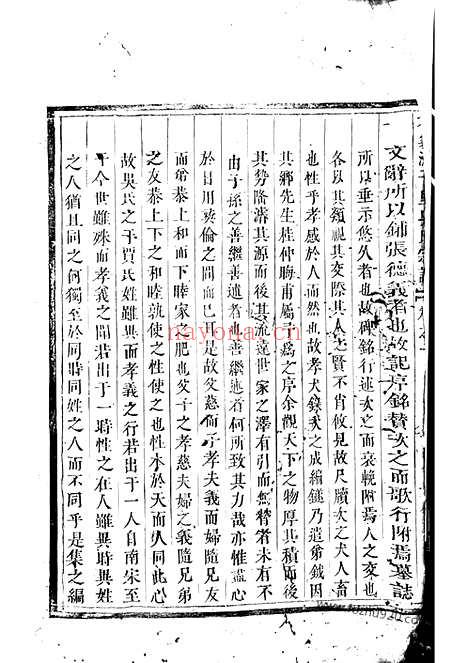 文辭所以鋪張德義者也故記序銘贊次之而歌行附焉墓誌
所以垂示悠久者也故碑銘行述次之而哀輓附焉人之交也
各以其類視其交際其人之賢不肖攸見故尺牘次之犬人畜
也性乎孝感於人而然也故孝犬錄次之成編鋟乃遣弟鉞因
其鄉先生桂仲晦甫屬予為之序余觀天下之物厚其積而
其勢隆濬其源而後其流遠世家之澤有引而無替者未有不
由子孫之善繼善述者也善繼述者其有他技力哉亦惟盡心
於日用彝倫之間而巳是故父慈而子孝夫義而婦隨兄友
而弟恭上和而下睦家之肥也父子之孝慈夫婦之義隨兄弟
之友恭上下之和睦孰使之性使之也性出於天而人同此心
故吳氏之于賈氏姓雖異而孝義之行若出于一人自南宋至
于今世雖殊而孝義之聞若出于一時性之在人雖異時異姓
之人猶且同之何獨至於同時同姓之人而不同乎是集之編
nayona.cn